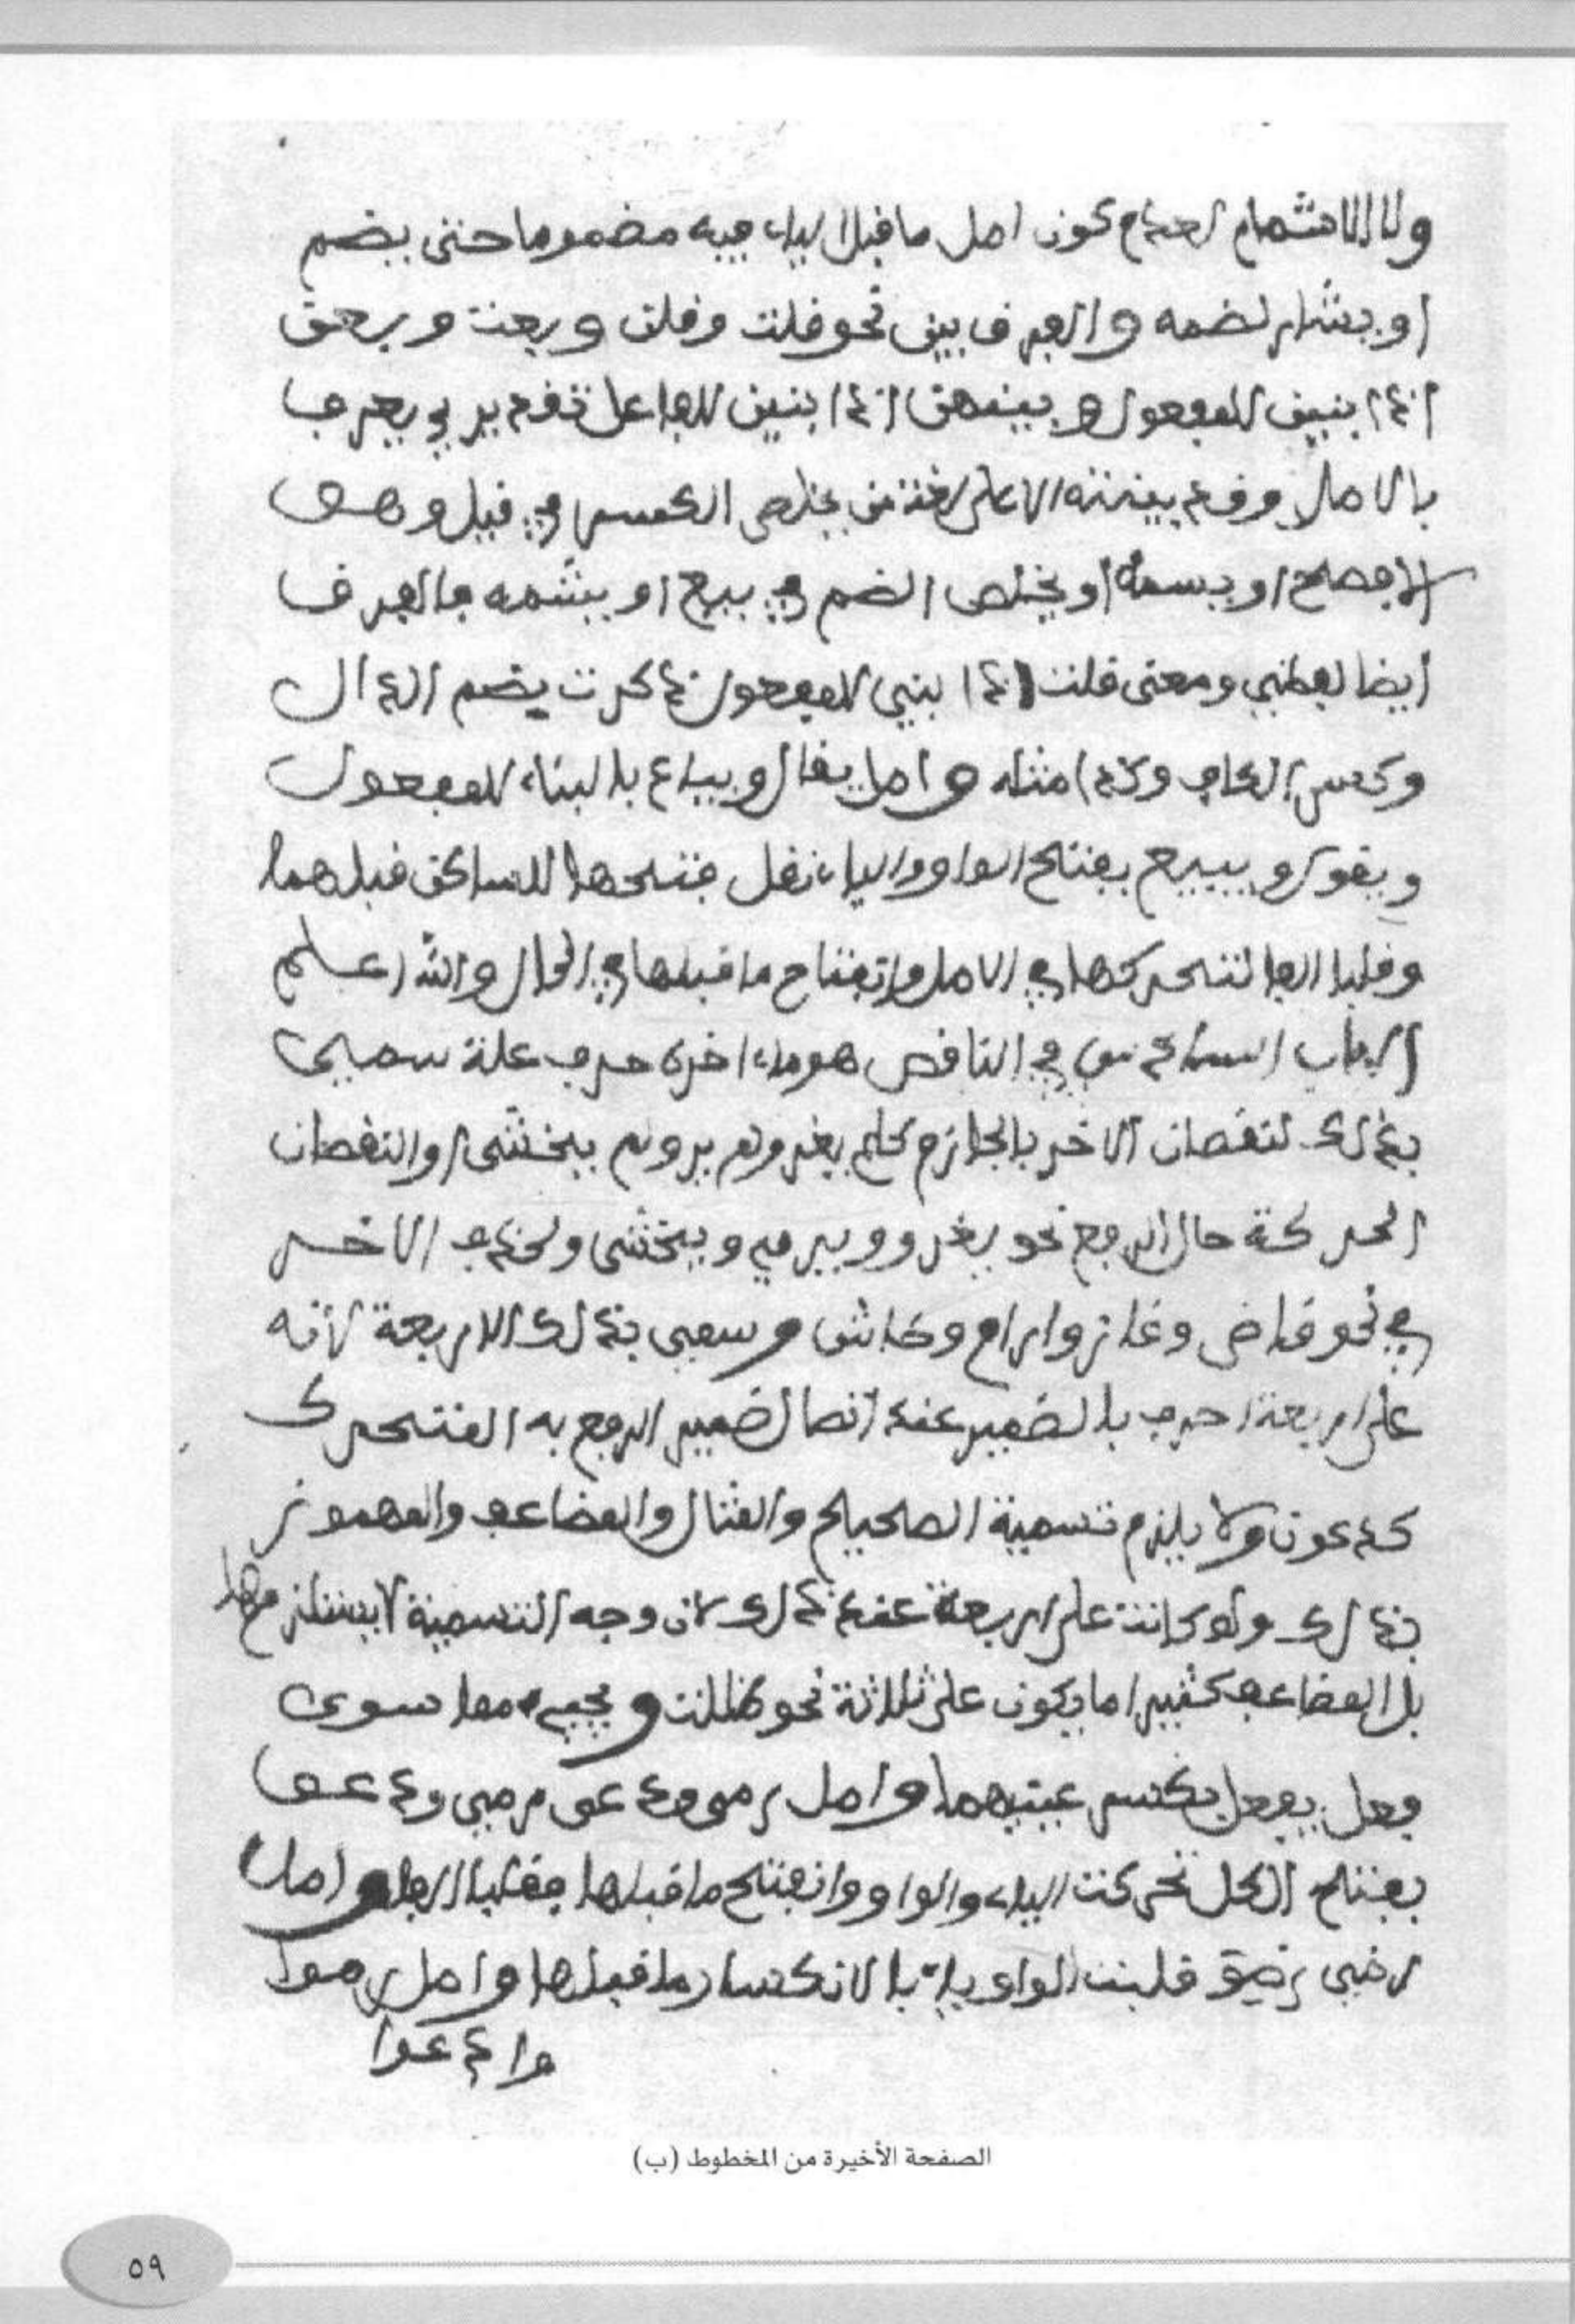 ولا الاشمام لعدم كون اصل ما قبل الياء فيه مضموما حتى يضم
او يشار لضمه والفرق بين نحو قلت وقلن وبعت وبعن
اذا بنين للمفعول وبينهن اذا بنين للفاعل تقديري يعرف
بالاصل وقد بينته الا على لغة من يخلص الكسر في قيل وهي
الافصح او يسمه او يخلص الضم في بيع او يشمه فالفرق
ايضا لفظي ومعنى قلت اذا بني للمفعول ذكرت بضم الذال
وكسر الكاف وكذا مثله واصل يقال ويباع بالبناء للمفعول
ويقول ويبيع بفتح الواو والياء نقل فتحها للساكن قبلهما
وقلبا الفا لتحركها في الاصل وانفتاح ما قبلها في الحال والله اعلم
الباب السادس في الناقص هو ما ءاخره حرف علة سمي
بذلك لنقصان الاخر بالجازم كلم يغز ولم يرم ولم يخش او لنقصان
الحركة حال الرفع نحو يغزو ويرمي ويخشى ولحذف الاخر
في نحو قاض وغاز ورام وخاش وسمي بذلك الاربعة لأنه
على اربعة احرف بالضمير عند اتصال ضمير الرفع به المتحرك
كدعوت ولا يلزم تسمية الصحيح والمثال والمضاعف والمهموز
بذلك ولو كانت على اربعة عند ذلك لان وجه التسمية لا يستلزمها
بل المضاعف كثيرا ما يكون على ثلاثة نحو ظلت ويجيء مما سوى
فعل يفعل بكسر عينيهما واصل رمى ودعى رمي ودعو
بفتح الكل تحركت الياء والواو وانفتح ما قبلها فقلبا الفا واصل
رضي رضو قلبت الواو ياء بالانكسار ما قبلها واصل رموا
ودعوا
الصفحة الأخيرة من المخطوط (ب)
٥٩